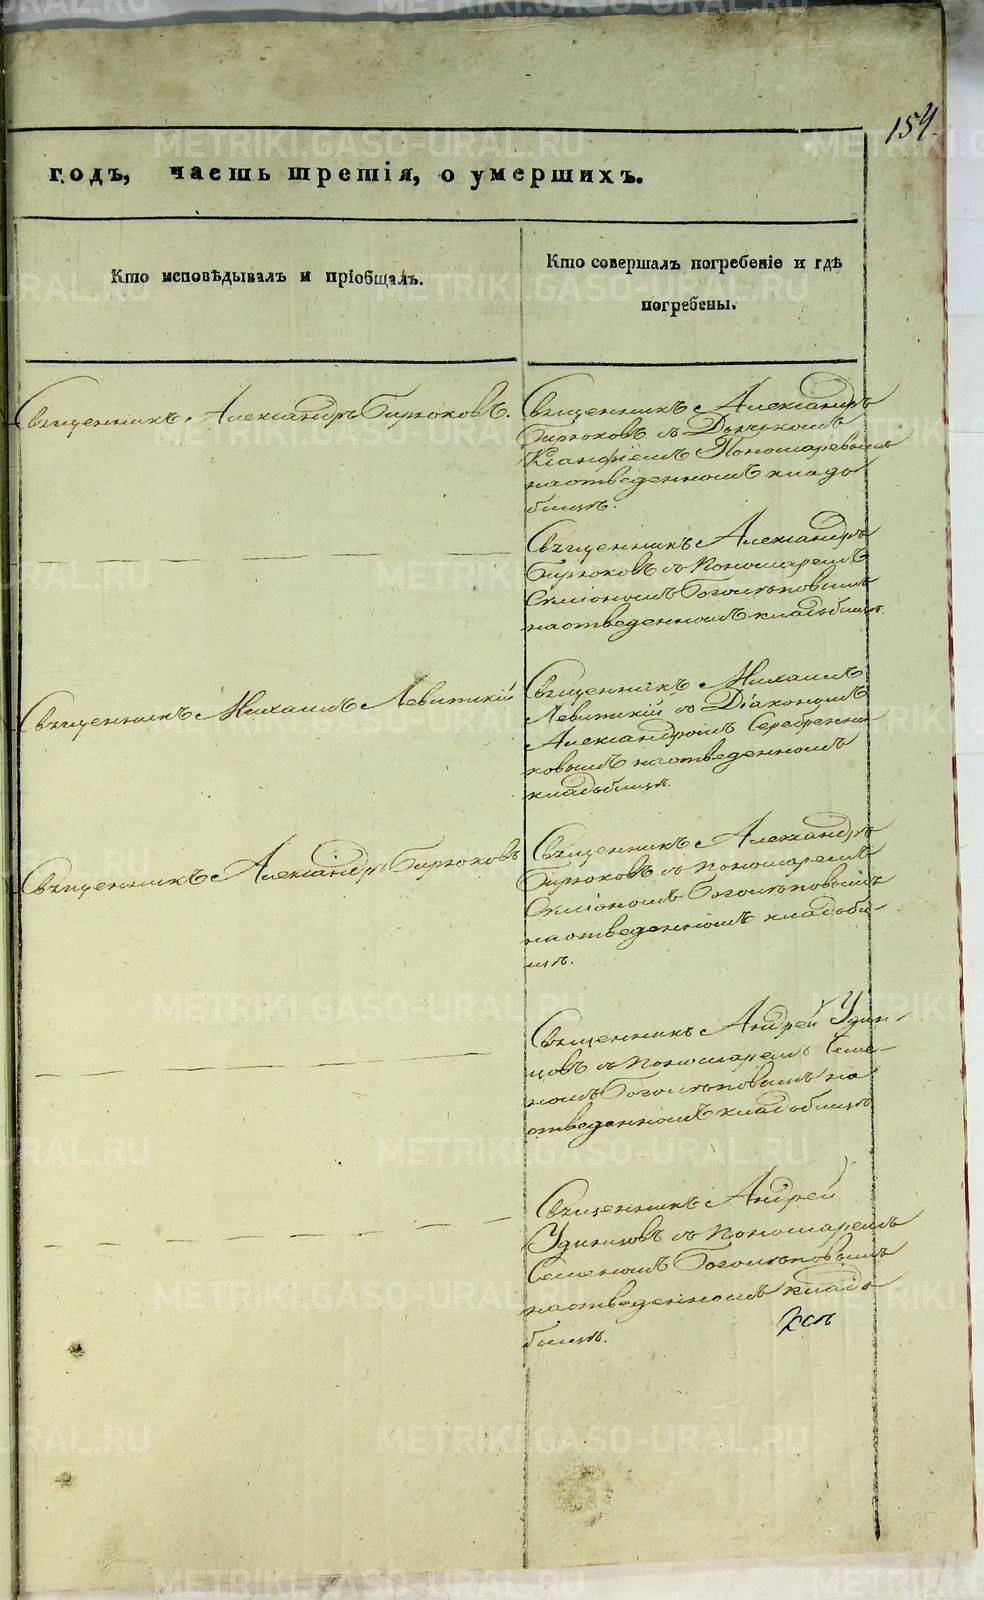 154.
годъ, часть третія, о умершихъ.
Кто исповѣдывалъ и пріобщалъ.
Кто совершалъ погребеніе и гдѣ
погребены.
Священникъ Александръ Бирюковъ.
Священникъ Александръ
Бирюковъ съ Дьячкомъ
Пономаревымъ
на отведенномъ кладь
бищѣ.
Священникъ Александръ
Бирюковъ съ пономаремъ
Симіономъ Боголѣповымъ
на отведенномъ кладьбищѣ.
Священникъ Михаилъ Левитскій
Священникъ Михаилъ
Левитскій съ Діакономъ
Александромъ Серебренни-
ковымъ на отведенномъ
кладьбищѣ.
Священникъ Александръ Бирюковъ
Священникъ Александръ
Бирюковъ съ пономаремъ
Симіономъ Боголѣповымъ
на отведенномъ кладьби-
щѣ.
Священникъ Андрей Удин-
цовъ съ пономаремъ Семе-
номъ Боголѣповымъ на
отведенномъ кладьбищѣ
Священникъ Андрей
Удинцовъ съ пономаремъ
Семеномъ Боголѣповымъ
на отведенномъ кладь
бищѣ.
METRIKI.GASO-URAL.RU